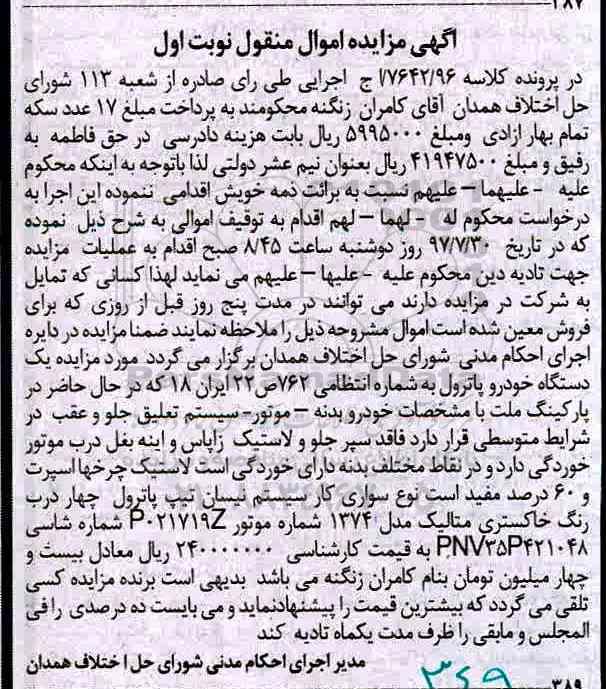 ۲۸۷
آگهی مزایده اموال منقول نوبت اول
در پرونده کلاسه ۷۶۴۲/۹۶/ا ج اجرایی طی رای صادره از شعبه ۱۱۳ شورای
حل اختلاف همدان آقای کامران زنگنه محکومند به پرداخت مبلغ ۱۷ عدد سکه
تمام بهار ازادی ومبلغ ۵۹۹۵۰۰۰ ریال بابت هزینه دادرسی در حق فاطمه به
رفیق و مبلغ ۴۱۹۴۷۵۰۰ ریال بعنوان نیم عشر دولتی لذا باتوجه به اینکه محکوم
علیه - علیهما – علیهم نسبت به برائت ذمه خویش اقدامی ننموده این اجرا به
درخواست محکوم له - لهما – لهم اقدام به توقیف اموالی به شرح ذیل نموده
که در تاریخ ۹۷/۷/۳۰ روز دوشنبه ساعت ۸/۴۵ صبح اقدام به عملیات مزایده
جهت تادیه دین محکوم علیه - علیها – علیهم می نماید لهذا کسانی که تمایل
به شرکت در مزایده دارند می توانند در مدت پنج روز قبل از روزی که برای
فروش معین شده است اموال مشروحه ذیل را ملاحظه نمایند ضمنا مزایده در دایره
اجرای احکام مدنی شورای حل اختلاف همدان برگزار می گردد مورد مزایده یک
دستگاه خودرو پاترول به شماره انتظامی ۷۶۲ص۲۲ ایران ۱۸ که در حال حاضر در
پارکینگ ملت با مشخصات خودرو بدنه – موتور- سیستم تعلیق جلو و عقب در
شرایط متوسطی قرار دارد فاقد سپر جلو و لاستیک زاپاس و اینه بغل درب موتور
خوردگی دارد و در نقاط مختلف بدنه دارای خوردگی است لاستیک چرخها اسپرت
و ۶۰ درصد مفید است نوع سواری کار سیستم نیسان تیپ پاترول چهار درب
رنگ خاکستری متالیک مدل ۱۳۷۴ شماره موتور P۰۲۱۷۱۹Z شماره شاسی
PNV۳۵P۴۲۱۰۴۸ به قیمت کارشناسی ۲۴۰۰۰۰۰۰۰ ریال معادل بیست و
چهار میلیون تومان بنام کامران زنگنه می باشد بدیهی است برنده مزایده کسی
تلقی می گردد که بیشترین قیمت را پیشنهادنماید و می بایست ده درصدی را فی
المجلس و مابقی را ظرف مدت یکماه تادیه کند
مدیر اجرای احکام مدنی شورای حل اختلاف همدان
۳۶۹
۳۸۹